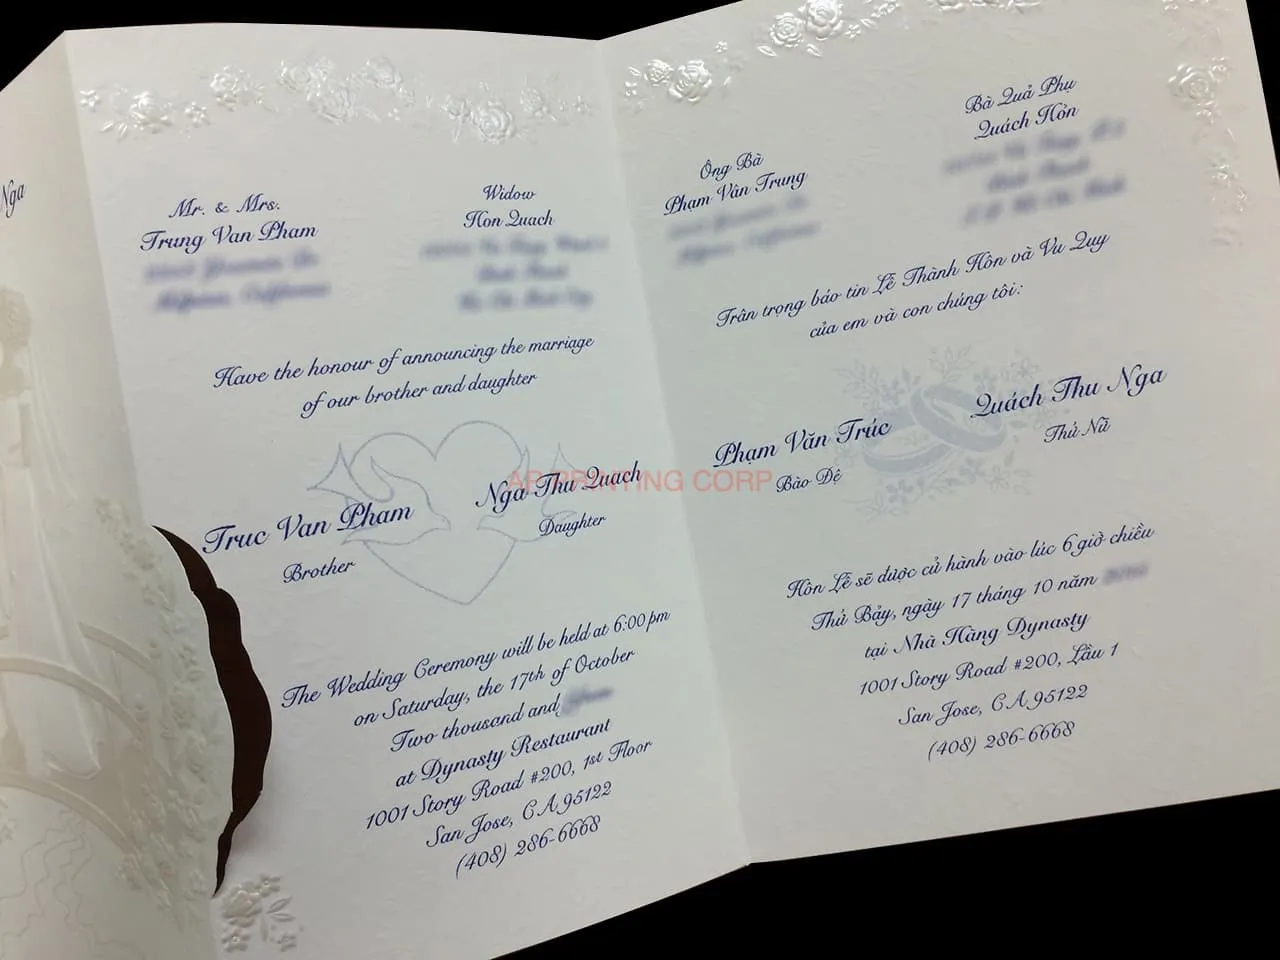 Nga
Mr. & Mrs.
Trung Van Pham
Widow
Hon Quach
Have the honour of announcing the marriage
of our brother and daughter
Truc Van Pham
Brother
Nga Thu Quach
Daughter
The Wedding Ceremony will be held at 6:00 pm
on Saturday, the 17th of October
Two thousand and
at Dynasty Restaurant
1001 Story Road #200, 1st Floor
San Jose, CA 95122
(408) 286-6668
Ông Bà
Phạm Vân Trung
Bà Quả Phụ
Quách Hỏn
Trân trọng báo tin Lễ Thành Hôn và Vu Quy
của em và con chúng tôi:
Phạm Văn Trúc
Bào Đệ
Quách Thu Nga
Thứ Nữ
Hôn Lễ sẽ được cử hành vào lúc 6 giờ chiều
Thứ Bảy, ngày 17 tháng 10 năm
tại Nhà Hàng Dynasty
1001 Story Road #200, Lầu 1
San Jose, CA 95122
(408) 286-6668
AP PRINTING CORP